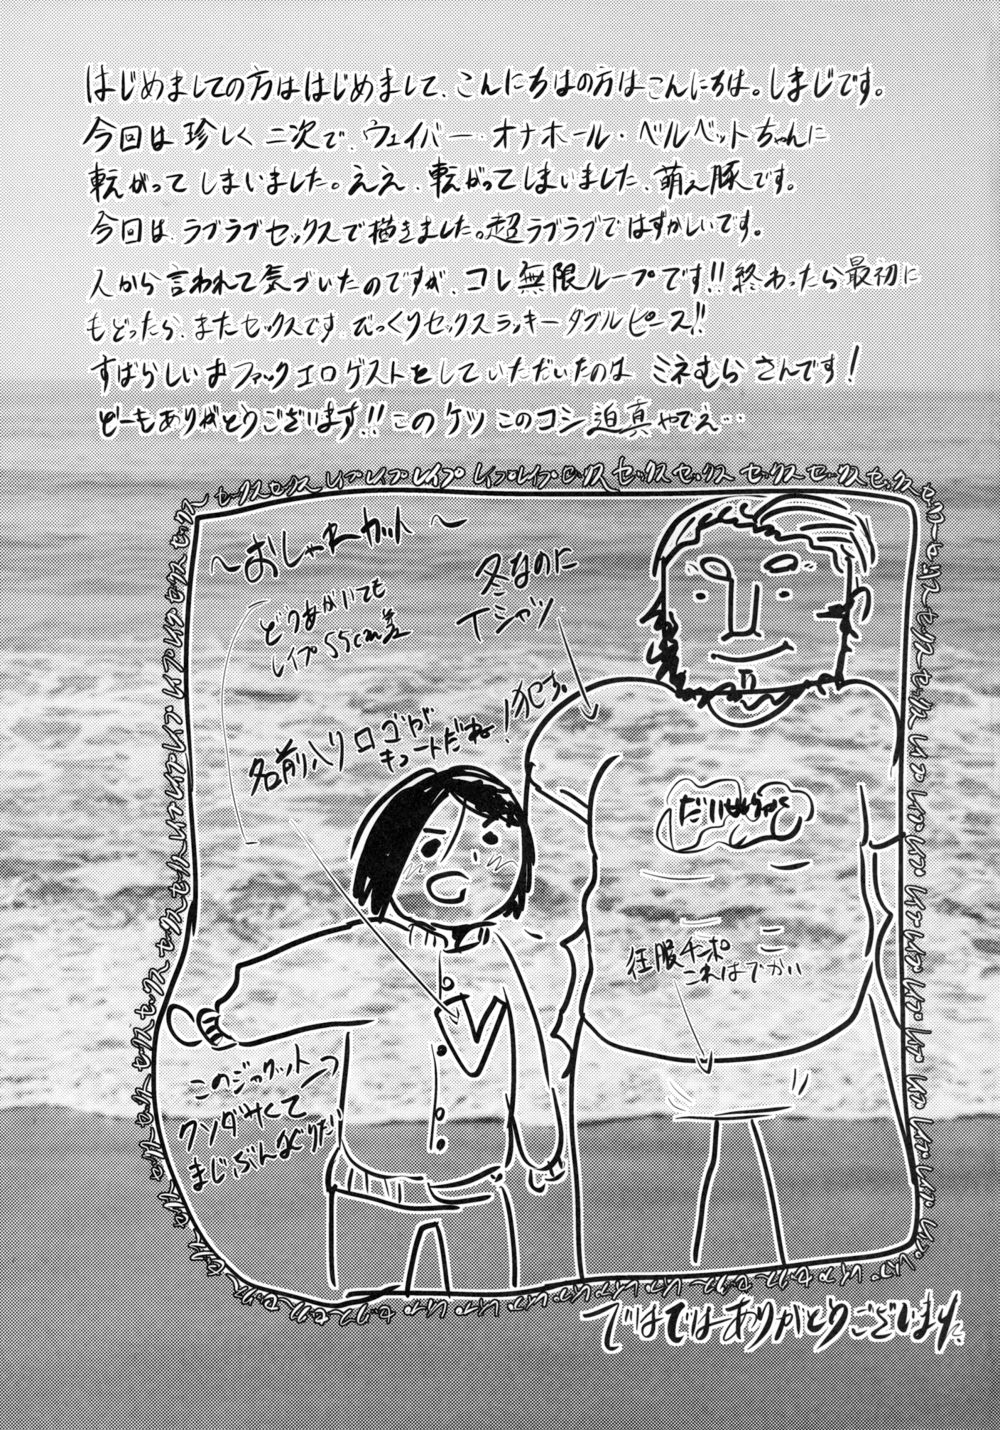 はじめましての方ははじめまして、こんにちはの方はこんにちは。しまじです。
今回は珍しく二次で、ウェイバー・オナホール・ベルベットちゃんに
転がってしまいました。ええ、転がってしまいました、萌え豚です。
今回は、ラブラブセックスで描きました。超ラブラブではずかしいです。
人から言われて気づいたのですが、コレ無限ループです!!終わったら最初に
もどったら、またセックスです、びっくりセックスラッキーダブルピース!!
すばらしいおファックエロゲストをしていただいたのは ミネむら さんです!
どーもありがとうございます!!このケツこのコシ迫真やでえ…
セックス セックス レイプ レイプ レイプ レイプ レイプ セックス セックス セックス セックス セックス セックス
〜おしゃれカット〜
どうあがいても
レイプ55cm差
冬なのに
Tシャツ
名前入りロゴがキュートだね!犯す。
だいせんりゃく
征服チンポ
これはでかい
このジャケット
クソダサくて
まじぶんなぐりたい
ではではありがとうございました